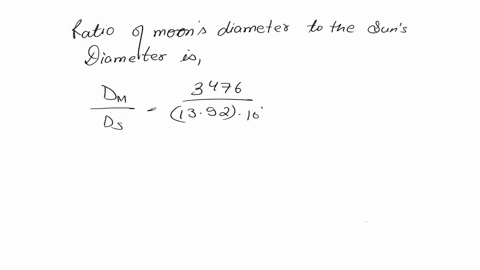 Ratio of moon's diameter to the Sun's
Diameter is,
D_M / D_S = 3476 / (13.92) . 10